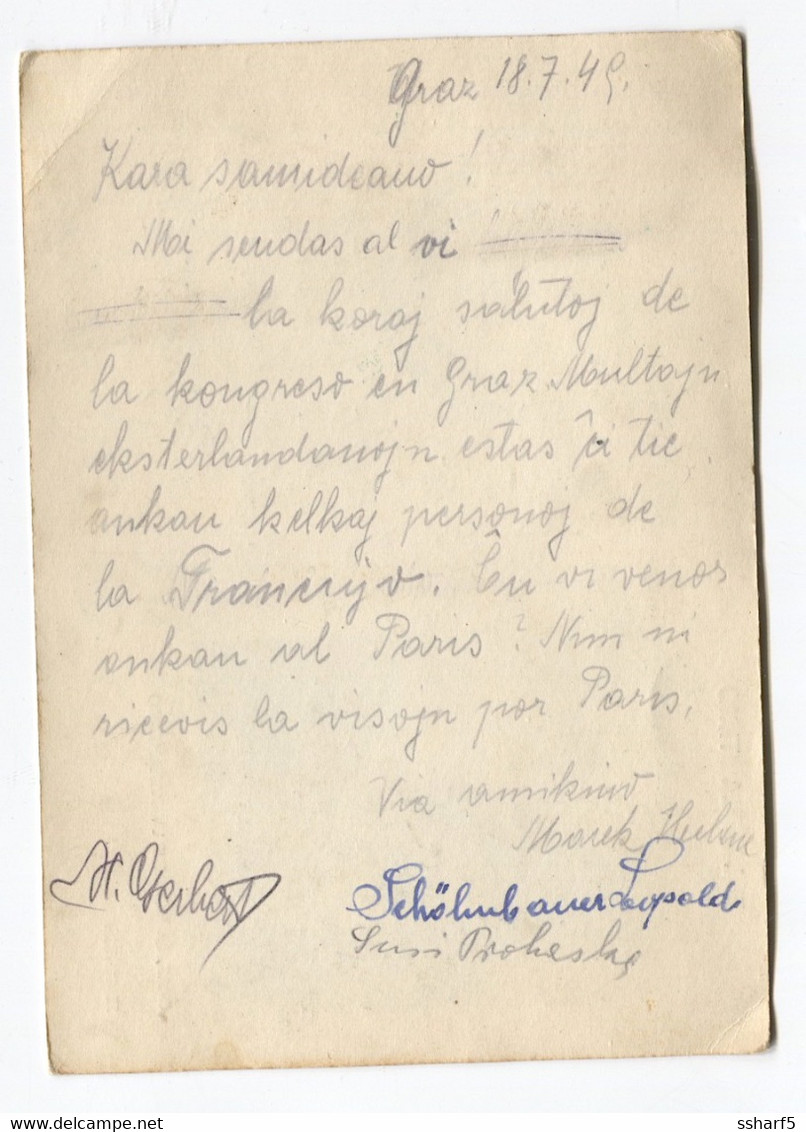 Graz 18.7.49.
Kara samideano!
Mi sendas al vi
la koraj salutoj de
la kongreso en Graz. Multajn
eksterlandanojn estas ĉi tie
ankau kelkaj personoj de
la Francujo. Ĉu vi venos
ankau al Paris? Nun ni
ricevis la visojn por Paris.
Via amikino
Marek Helene
H.
Schöhnbauer Leopold
Susi Prohaska
ssharf5